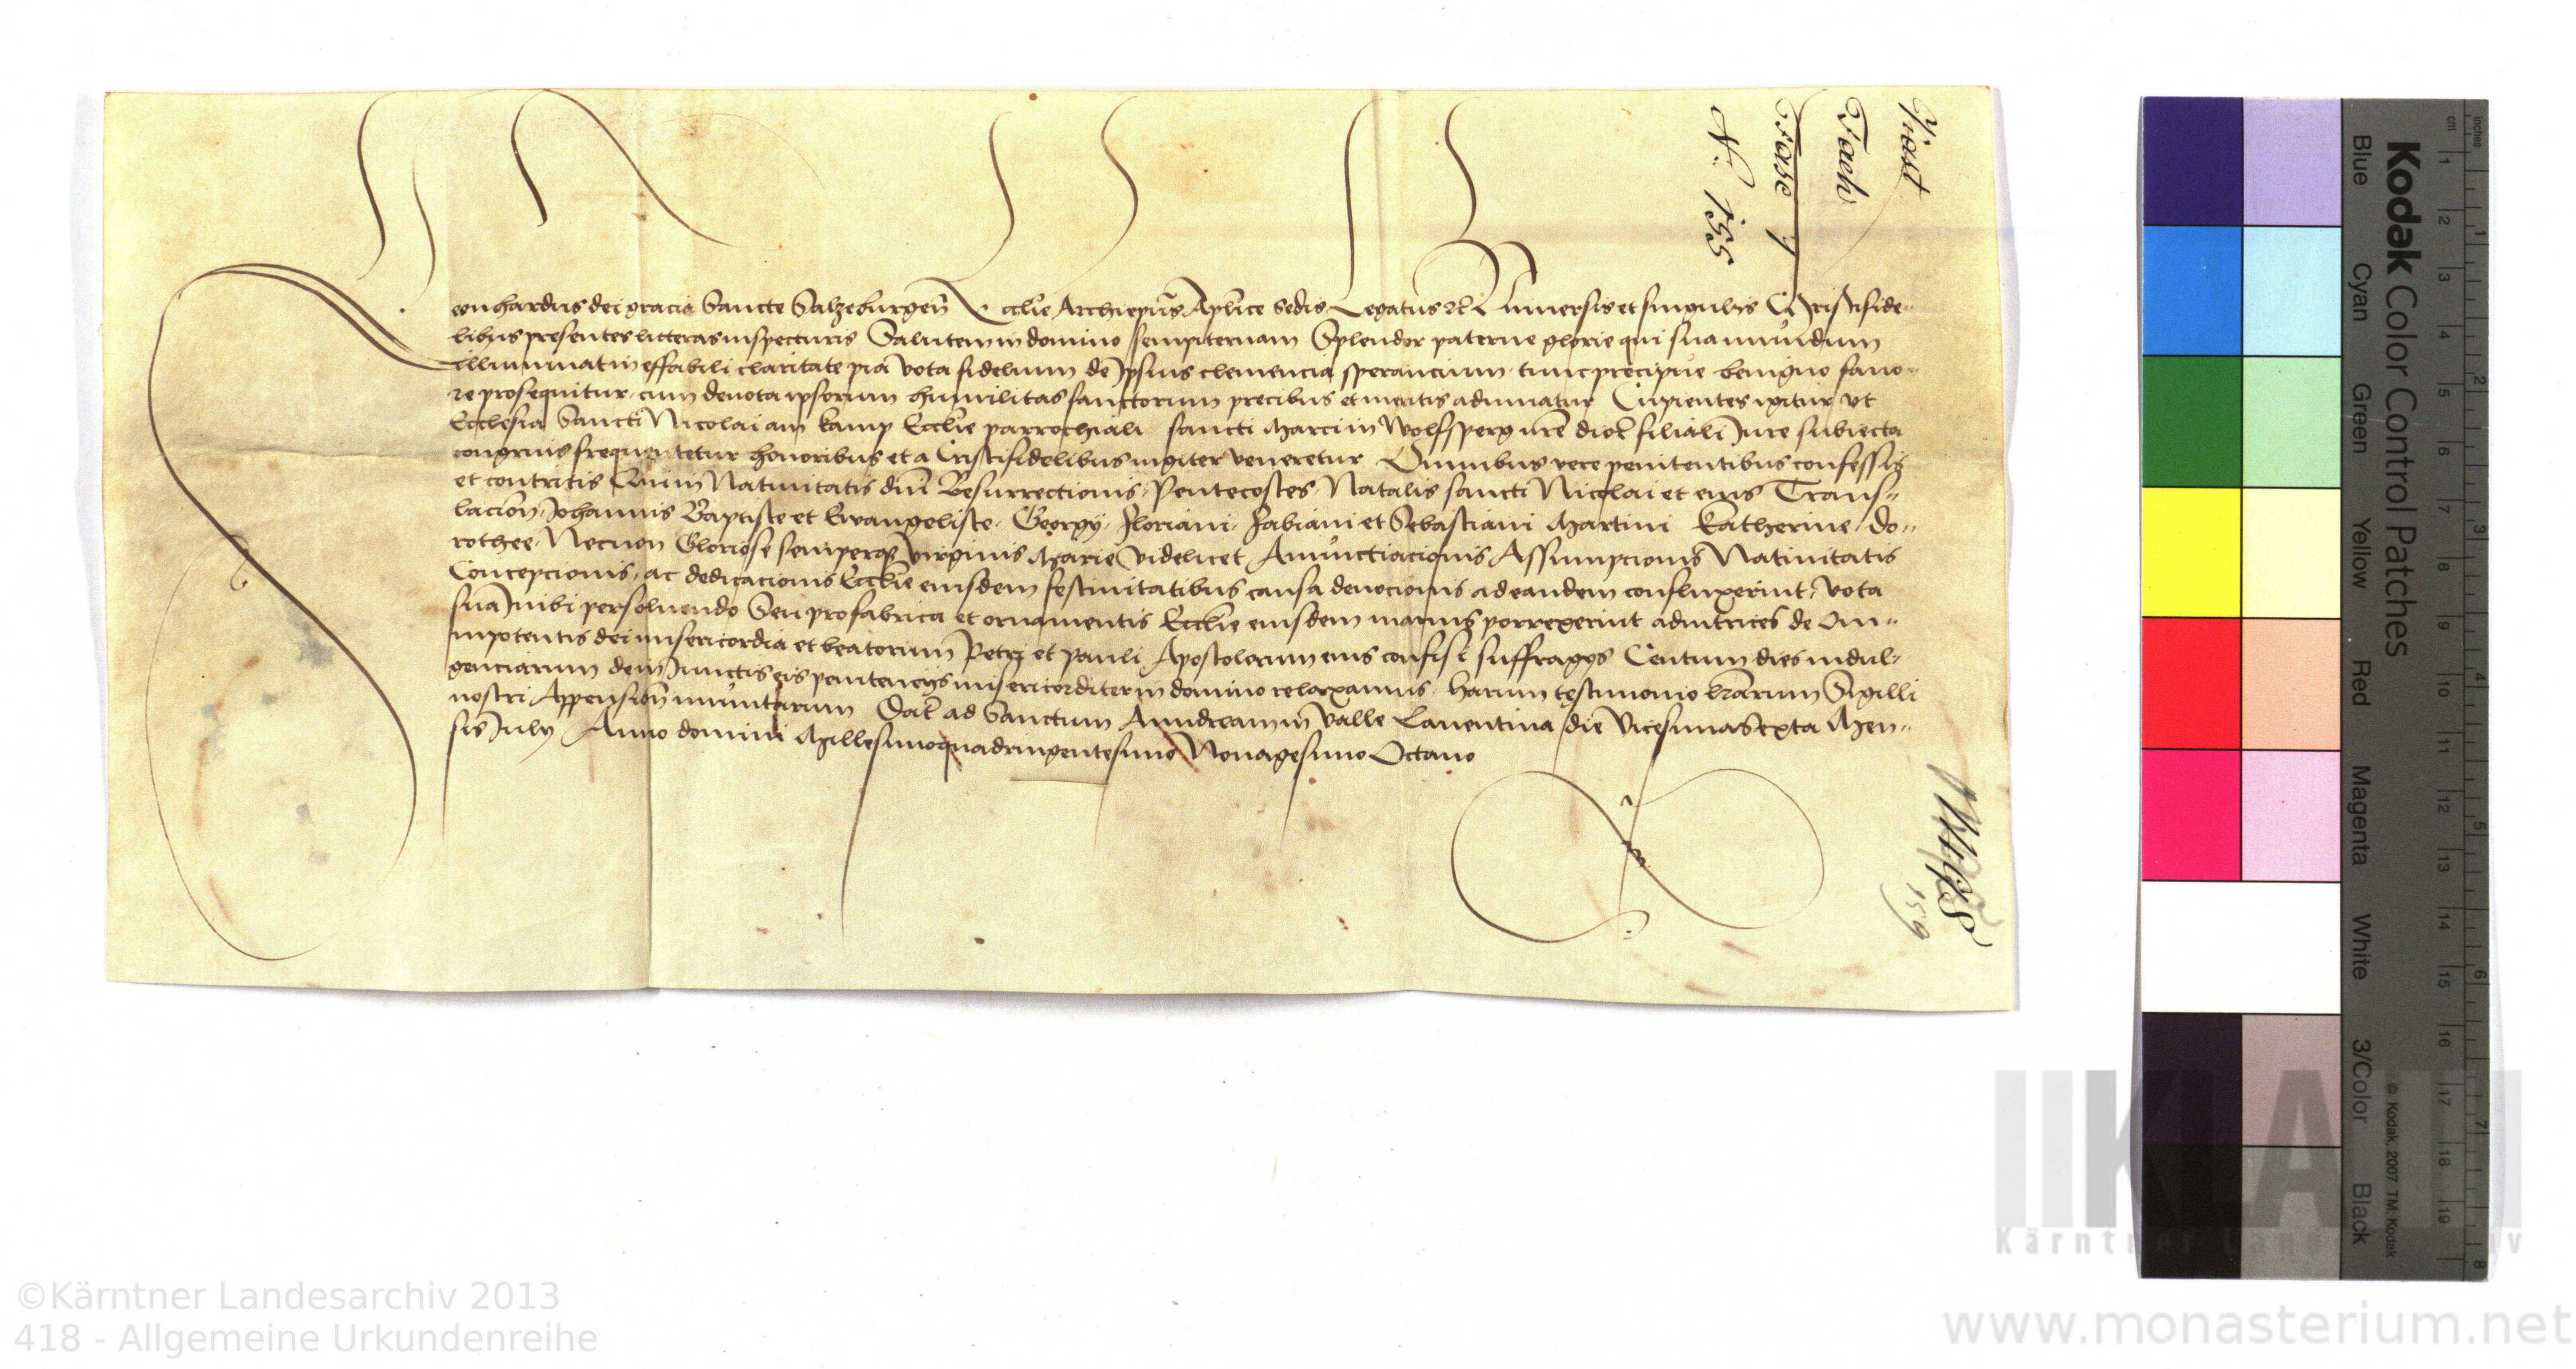 Leonhardus dei gracia Sancte Salzeburgen̄ Ecclie Archiepūs Aplice Sedis Legatus Universis et singulis Cristifide-
libus presentes litteras inspecturis Salutem in domino sempiternam Splendor paterne glorie qui sua mundum
illuminat ineffabili claritate pia vota fidelium de Ipsius clemencia sperancium tunc precipue benigno favo-
re prosequitur cum devota ipsorum humilitas sanctorum precibus et meritis adiuvatur Cupientes igitur vt
Ecclesia Sancti Nicolai am kamp Ecclie parrochiali sancti Marci in Wolfsperg nre dioc filiali Jure subiecta
congruis frequentetur honoribus et a Cristifidelibus iugiter veneretur Omnibus vere penitentibus confessis
et contritis Qui in Nativitatis dni Resurrectionis Pentecostes Natalis sancti Nicolai et eius Trans-
lacion Johannis Baptiste et Ewangeliste Georgy Floriani Fabiani et Sebastiani Martini Katherine Do-
rothee Necnon Gloriose semperque virginis Marie videlicet Anunctiacionis Assumpcionis Nativitatis
Concepcionis ac dedicacionis Ecclie eiusdem festivitatibus causa devocionis ad eandem confluxerint vota
sua Inibi persolvendo Seu pro fabrica et ornamentis Ecclie eiusdem manus porrexerint adiutrices de Om-
nipotentis dei misericordia et beatorum Petri et Pauli Apostolorum eius confisi suffragys Centum dies indul-
genciarum de iniunctis eis penitencys misericorditer in domino relaxamus harum testimonio lrarum Sigilli
nostri Appension munitarum Dat ad Sanctum Anndream in Valle Laventina die Vicesimasexta Men-
sis July Anno domini Millesimoquadringentesimo Nonagesimo Octavo
Fach
Fasc
N. 155
159
Kodak Color Control Patches
Blue Cyan Green Yellow Red Magenta White 3/Color Black
© Kodak, 2007 TM: Kodak
inches 1 2 3 4 5 6 7 8
cm 1 2 3 4 5 6 7 8 9 10 11 12 13 14 15 16 17 18 19
Kärntner Landesarchiv
©Kärntner Landesarchiv 2013
418 - Allgemeine Urkundenreihe
www.monasterium.net